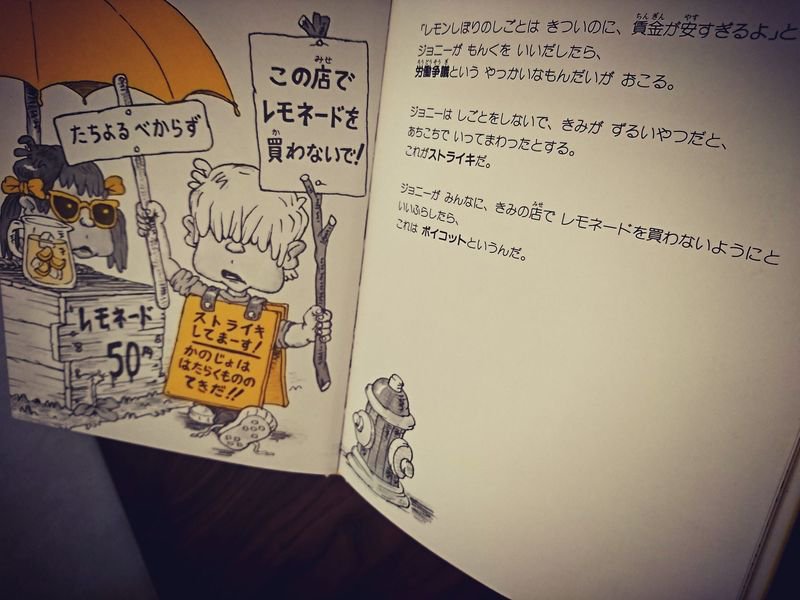 たちよるべからず
この店で
レモネードを
買わないで!
みせ
か
レモネード
50円
ストライキ
してまーす!
かのじょは
はたらくものの
てきだ!!
「レモンしぼりのしごとは きついのに、賃金が安すぎるよ」と
ちんぎん やす
ジョニーが もんくを いいだしたら、
労働争議という やっかいなもんだいが おこる。
ろうどうそうぎ
ジョニーは しごとをしないで、きみが ずるいやつだと、
あちこちで いってまわったとする。
これがストライキだ。
ジョニーが みんなに、きみの店で レモネードを買わないようにと
みせ か
いいふらしたら、
これは ボイコットというんだ。